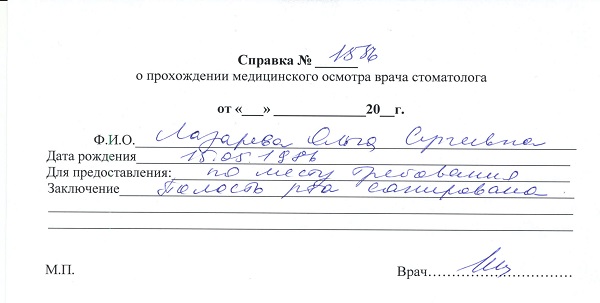 Справка № 1586
о прохождении медицинского осмотра врача стоматолога
от «___» ______________20__г.
Ф.И.О. Лазарева Ольга Сергеевна
Дата рождения 15.05.1986
Для предоставления: по месту требования
Заключение Полость рта санирована
М.П. Врач